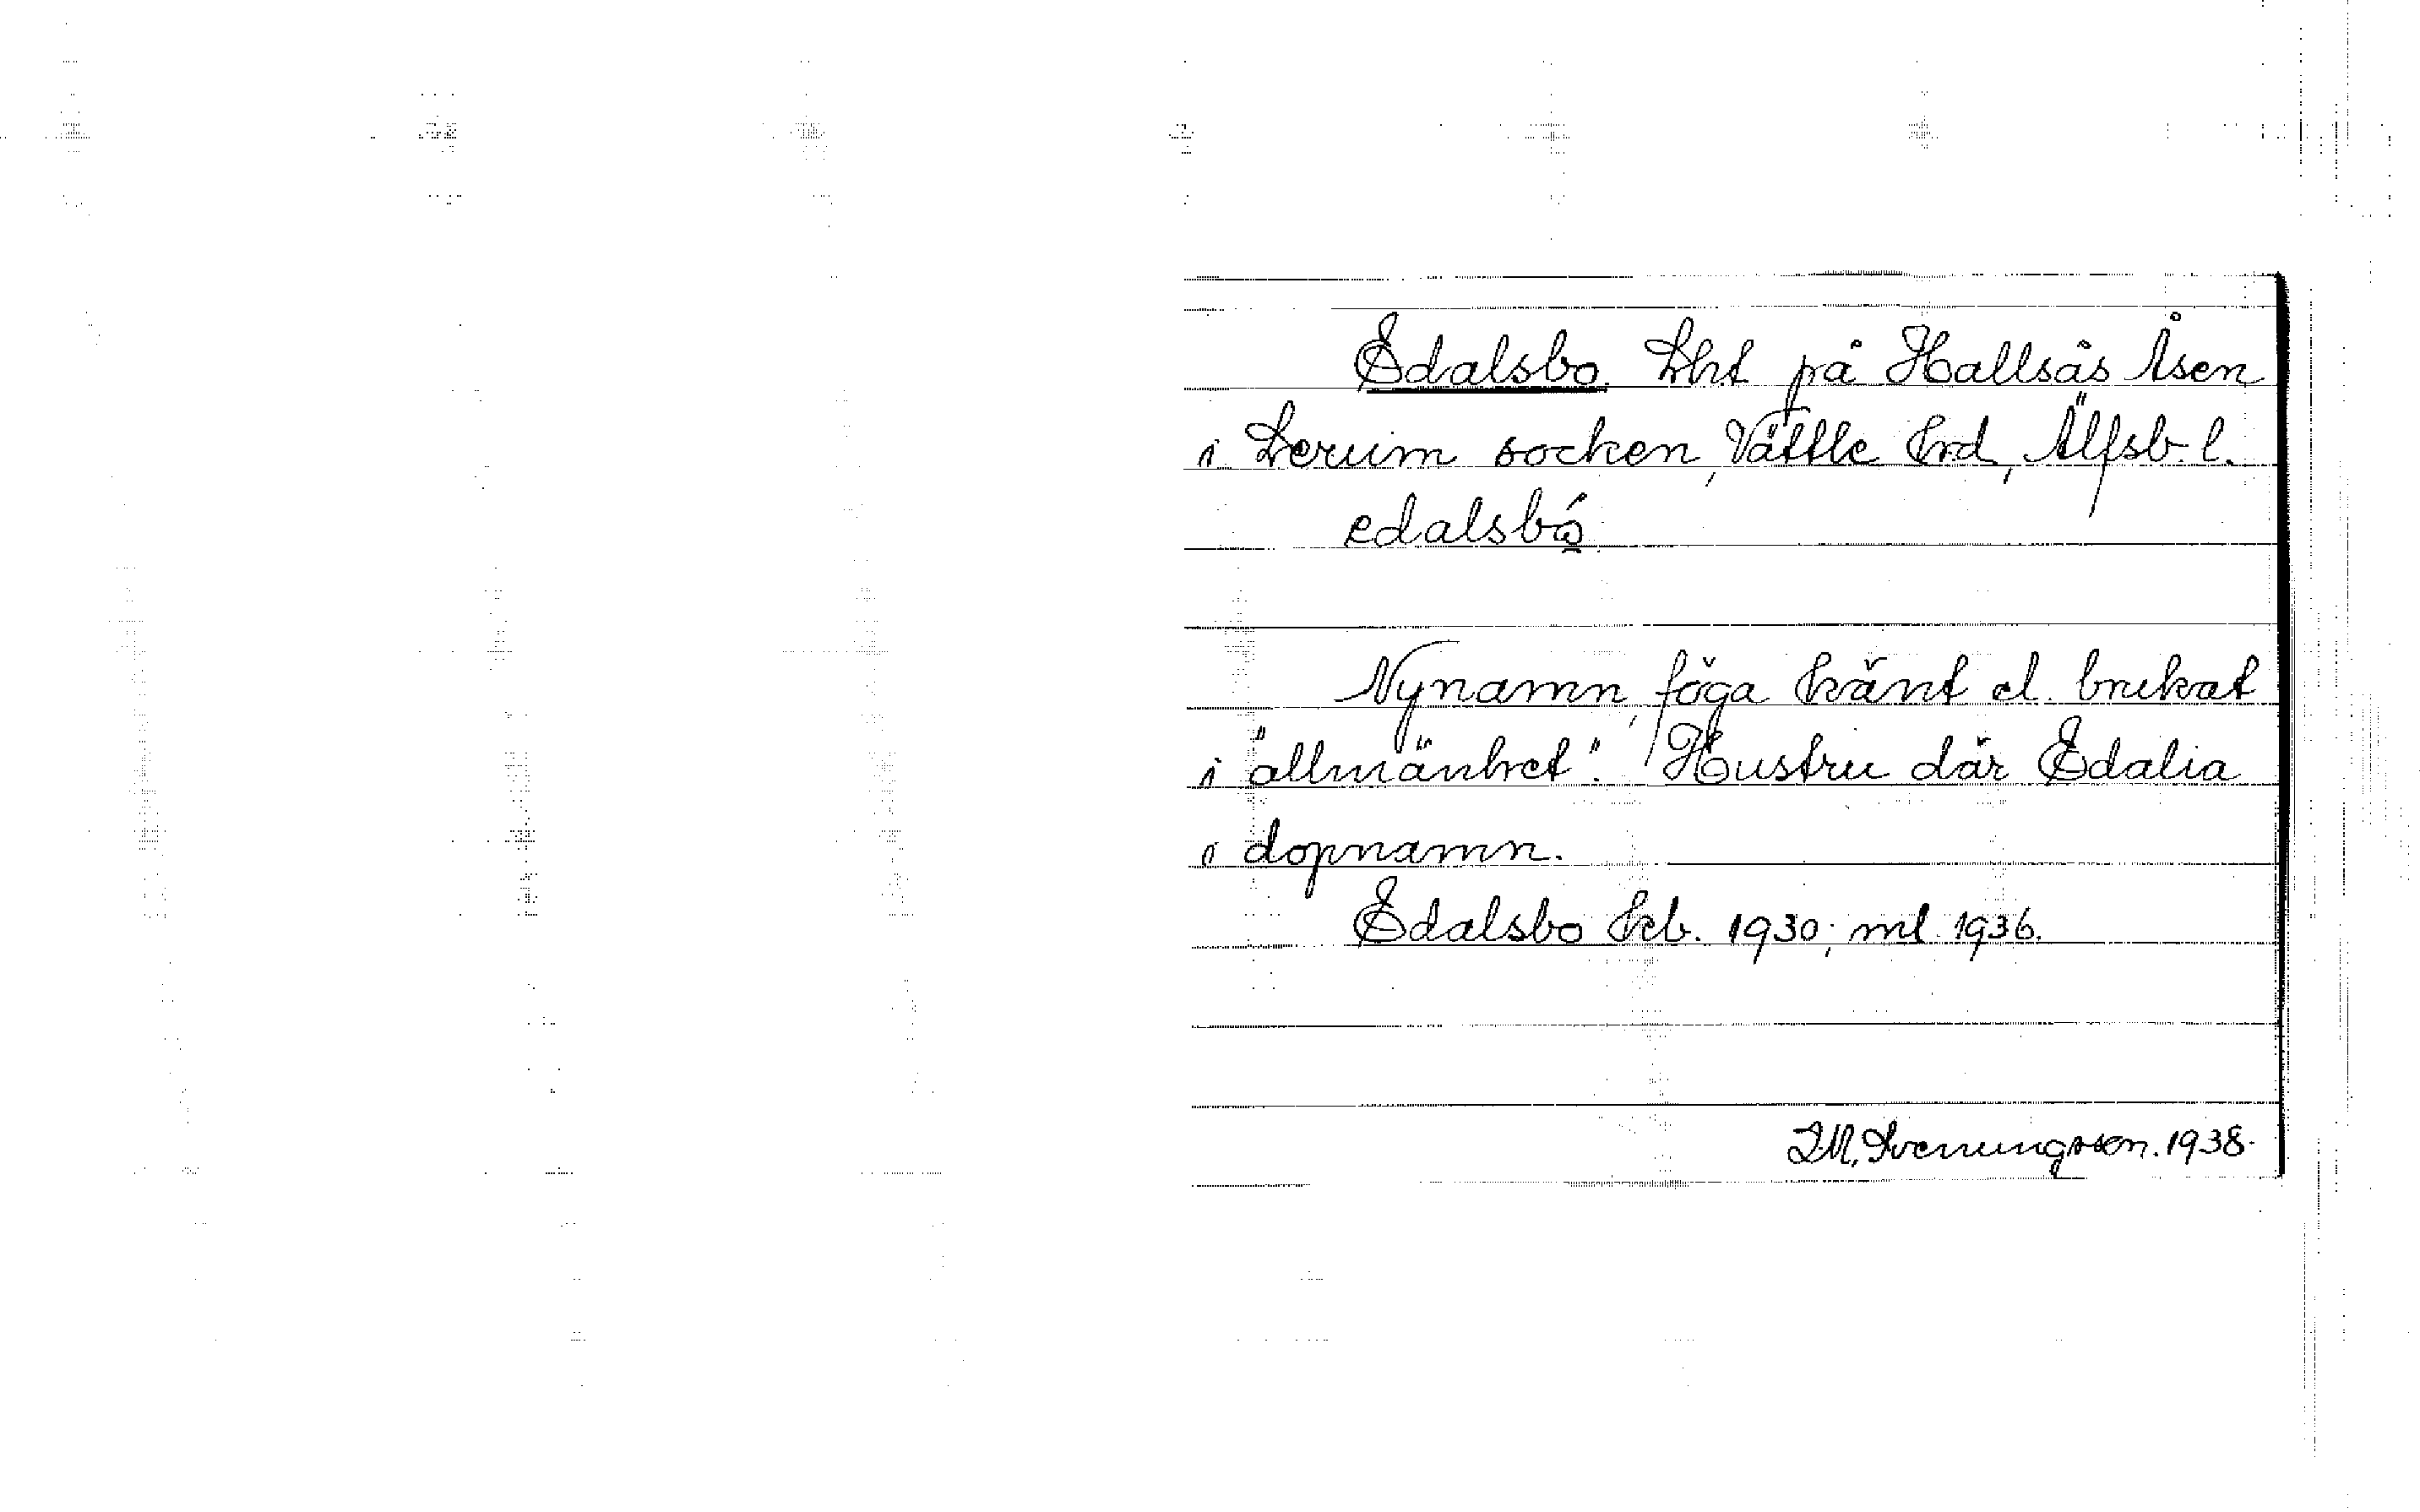 Edalsbo. Lht på Hallsås Åsen
i Lerum socken, Vättle hrd, Älfsb. l.
edalsbó
Nynamn, föga känt el. brukat
i "allmänhet". Hustru där Edalia
i dopnamn.
Edalsbo kb. 1930; ml 1936.
I.M. Svenungsson. 1938.